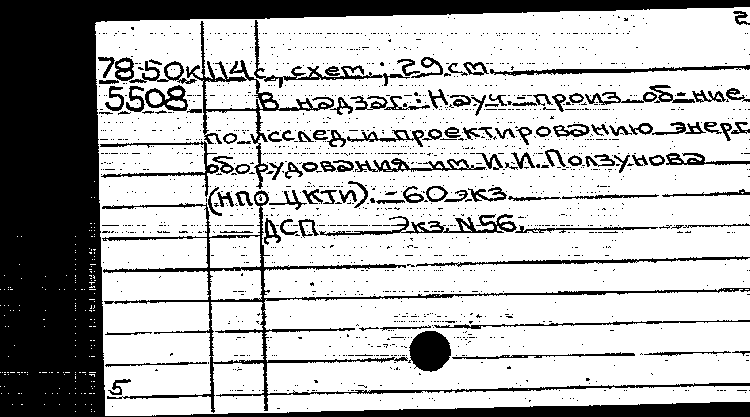 2
7850к 114 с., схем.; 29 см.
5508 В надзаг.: Науч.-произ. об-ние
по исслед. и проектированию энерг.
оборудования им. И.И. Ползунова
(НПО ЦКТИ). - 60 экз.
ДСП Экз. N56.
5